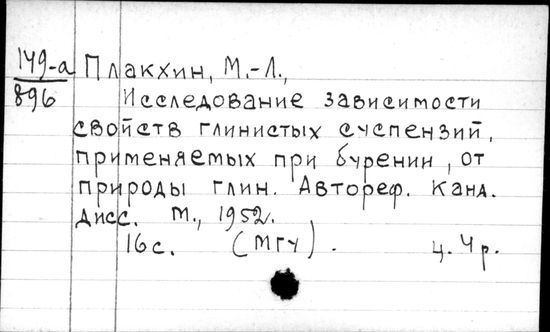 149-а Плакхин, М.-Л.,
896 Исследование зависимости
свойств глинистых суспензий,
применяемых при бурении, от
природы глин. Автореф. канд.
дисс. М., 1952.
16с. (МГУ). ц. 4 р.